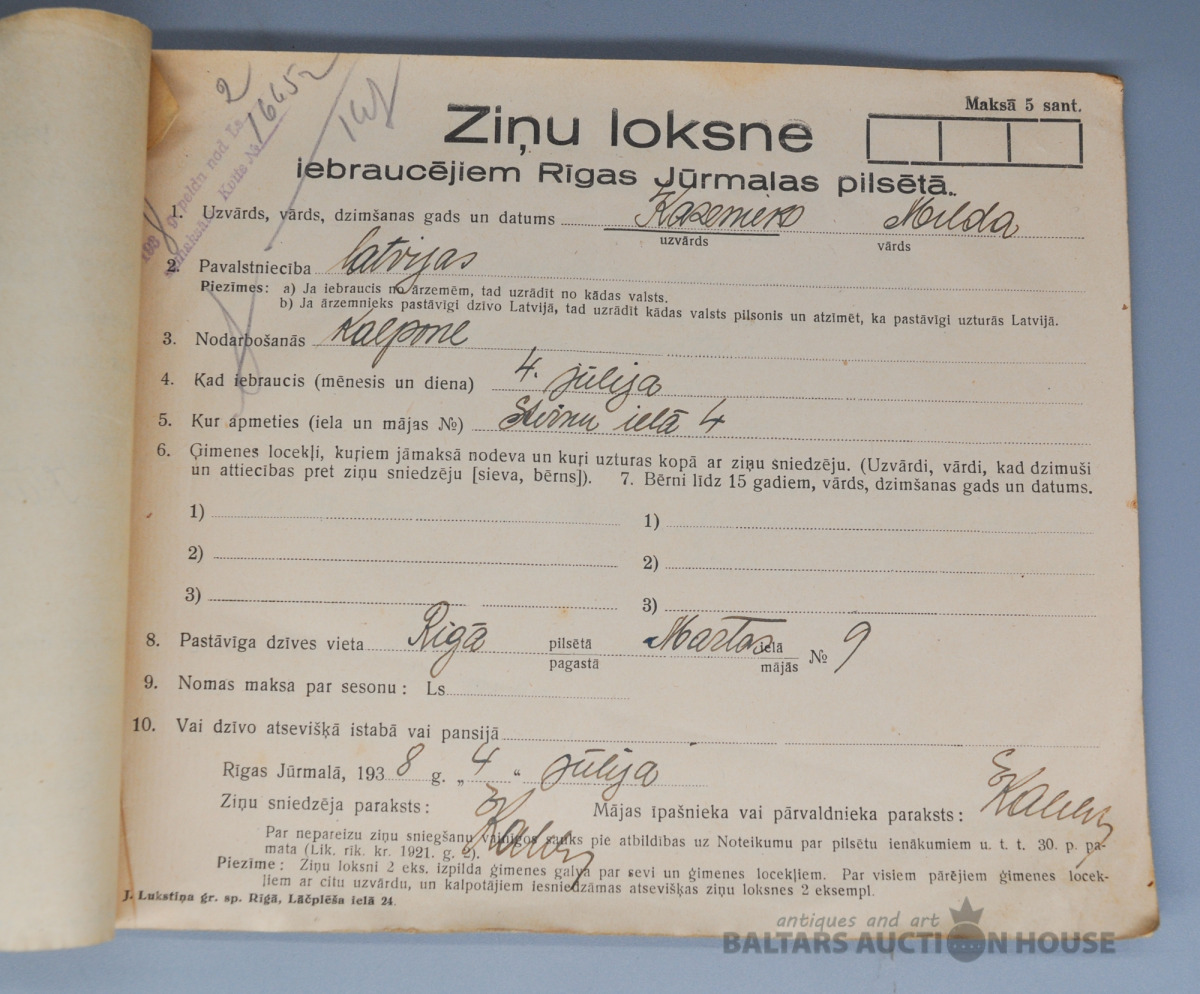 2
16652
193 8 g. peldn nod Ls
Maksā 5 sant.
Ziņu loksne
iebraucējiem Rīgas Jūrmalas pilsētā.
1. Uzvārds, vārds, dzimšanas gads un datums Milda
uzvārds vārds
2. Pavalstniecība latvijas
Piezīmes: a) Ja iebraucis no ārzemēm, tad uzrādīt no kādas valsts.
b) Ja ārzemnieks pastāvīgi dzīvo Latvijā, tad uzrādīt kādas valsts pilsonis un atzīmēt, ka pastāvīgi uzturās Latvijā.
3. Nodarbošanās Kalpone
4. Kad iebraucis (mēnesis un diena) 4. jūlija
5. Kur apmeties (iela un mājas №) ielā 4
6. Ģimenes locekļi, kuŗiem jāmaksā nodeva un kuŗi uzturas kopā ar ziņu sniedzēju. (Uzvārdi, vārdi, kad dzimuši
un attiecības pret ziņu sniedzēju [sieva, bērns]). 7. Bērni līdz 15 gadiem, vārds, dzimšanas gads un datums.
1) 1)
2) 2)
3) 3)
8. Pastāvīga dzīves vieta Rīgā pilsētā Martas ielā № 9
pagastā mājās
9. Nomas maksa par sesonu: Ls
10. Vai dzīvo atsevišķā istabā vai pansijā
Rīgas Jūrmalā, 1938 g. „ 4 “ jūlija
Ziņu sniedzēja paraksts: Mājas īpašnieka vai pārvaldnieka paraksts:
Par nepareizu ziņu sniegšanu vainigos sauks pie atbildības uz Noteikumu par pilsētu ienākumiem u. t. t. 30. p. pa-
mata (Lik. rīk. kr. 1921. g. 2).
Piezīme: Ziņu loksni 2 eks. izpilda ģimenes galva par sevi un ģimenes locekļiem. Par visiem pārējiem ģimenes locek-
ļiem ar citu uzvārdu, un kalpotājiem iesniedzāmas atsevišķas ziņu loksnes 2 eksempl.
J. Lukstiņa gr. sp. Rīgā, Lāčplēša ielā 24.
antiques and art
BALTARS AUCTION HOUSE